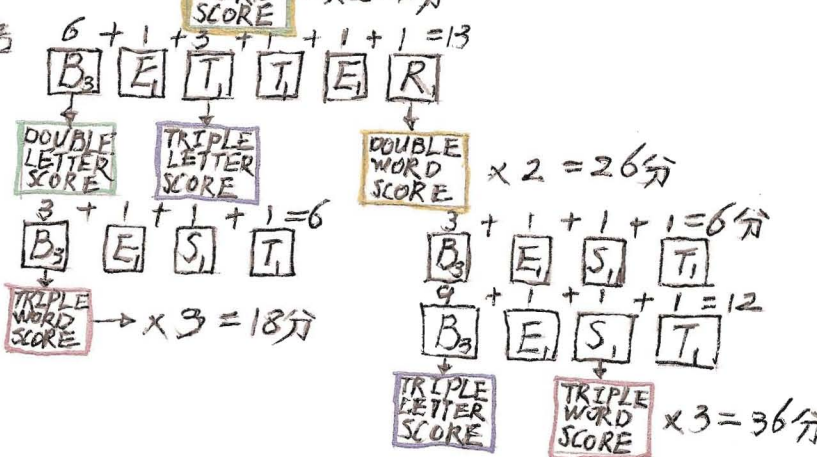 SCORE
6 + 1 + 3 + 1 + 1 + 1 = 13
B3 E1 T1 T1 E1 R1
DOUBLE
LETTER
SCORE
TRIPLE
LETTER
SCORE
DOUBLE
WORD
SCORE
× 2 = 26分
3 + 1 + 1 + 1 = 6
B3 E1 S1 T1
TRIPLE
WORD
SCORE
× 3 = 18分
3 + 1 + 1 + 1 = 6分
B3 E1 S1 T1
9 + 1 + 1 + 1 = 12
B3 E1 S1 T1
TRIPLE
LETTER
SCORE
TRIPLE
WORD
SCORE
× 3 = 36分